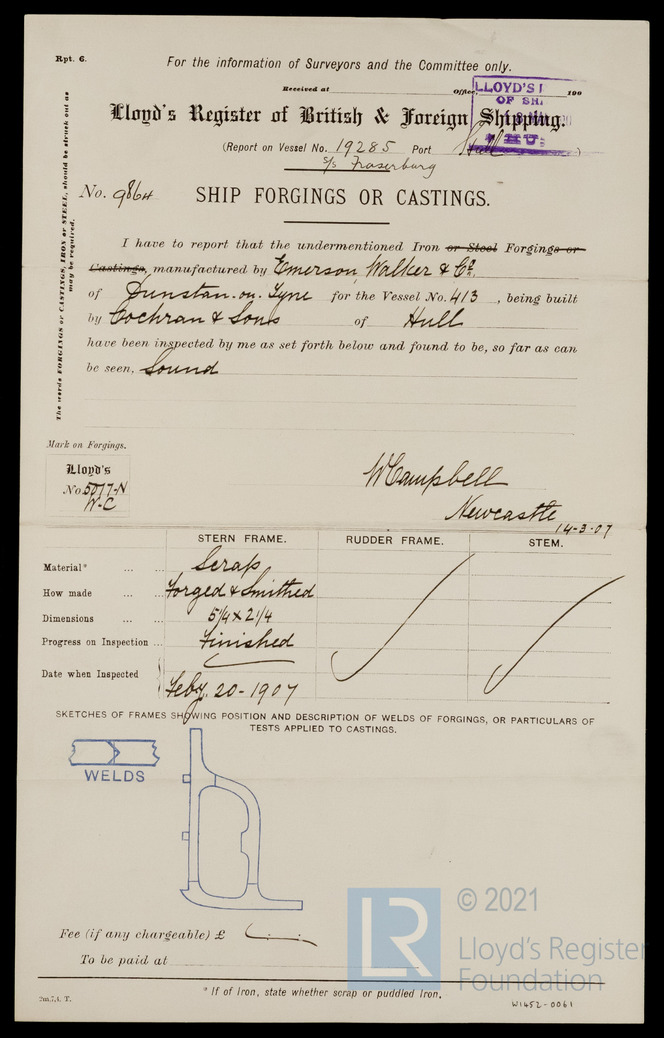 Rpt. 6.
For the information of Surveyors and the Committee only.
Received at Office, 190
LLOYD'S
OF SHI
HU
Lloyd's Register of British & Foreign Shipping.
(Report on Vessel No. 19285 Port Hull )
s/s Fraserburg
No. 9864 SHIP FORGINGS OR CASTINGS.
The words FORGINGS or CASTINGS, IRON or STEEL, should be struck out as
may be required.
I have to report that the undermentioned Iron or Steel Forgings or
Castings, manufactured by Emerson, Walker & Co.
of Dunston-on-Tyne for the Vessel No. 413 , being built
by Cochran & Sons of Hull
have been inspected by me as set forth below and found to be, so far as can
be seen, Sound
Mark on Forgings.
Lloyd's
No 5077-N
W-C
W Campbell
Newcastle
14-3-07
STERN FRAME. RUDDER FRAME. STEM.
Material* ... ... Scrap
How made ... ... Forged & Smithed
Dimensions ... ... 5 1/4 x 2 1/4
Progress on Inspection ... Finished
Date when Inspected Feby. 20-1907
SKETCHES OF FRAMES SHOWING POSITION AND DESCRIPTION OF WELDS OF FORGINGS, OR PARTICULARS OF
TESTS APPLIED TO CASTINGS.
WELDS
Fee (if any chargeable) £
To be paid at
LR
© 2021
Lloyd's Register
Foundation
* If of Iron, state whether scrap or puddled Iron.
W1452-0061